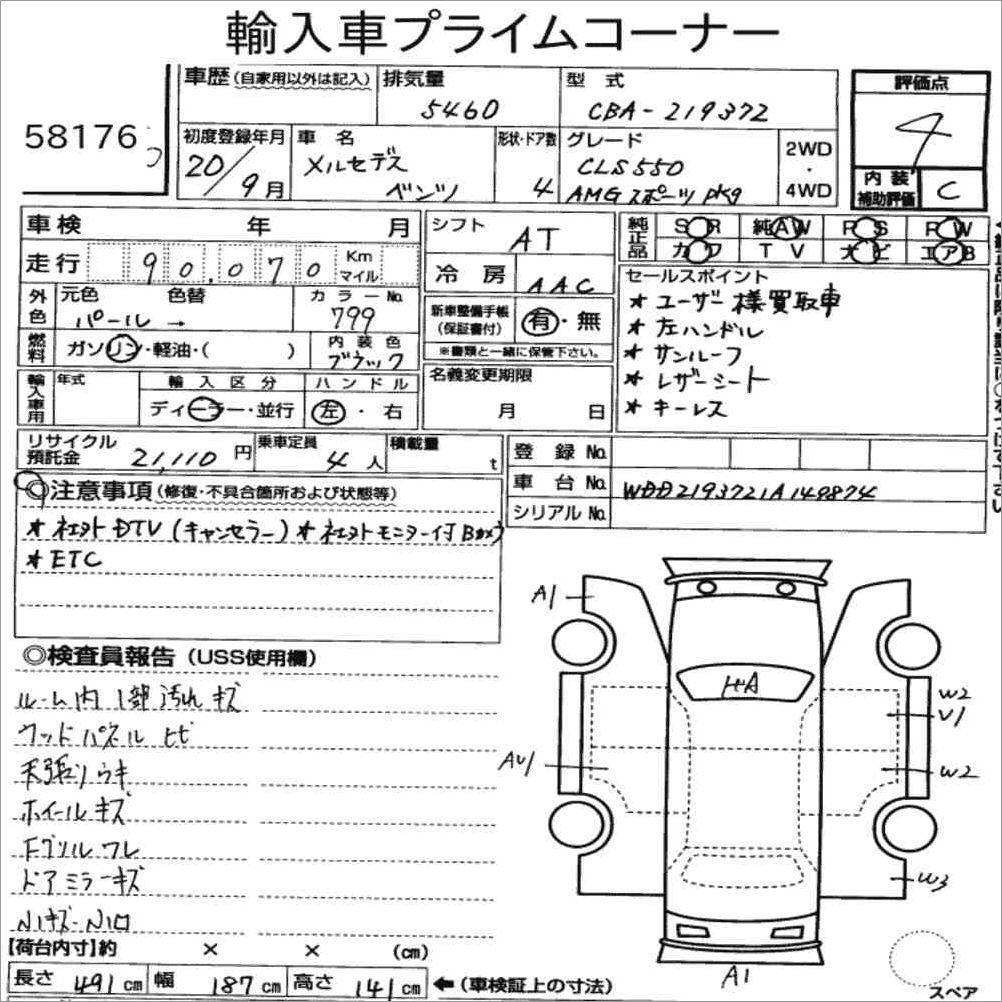 輸入車プライムコーナー
58176
車歴(自家用以外は記入)
排気量
5460
型式
CBA-219372
評価点
4
内装
補助評価
C
初度登録年月
20/9月
車名
メルセデス
ベンツ
形状・ドア数
4
グレード
CLS550
AMGスポーツpkg
2WD
・
4WD
車検 年 月
走行 90,070 Km
マイル
シフト
AT
冷房
AAC
純正品
SR 純AW PS PW
カワ TV ナビ エアB
外色
元色 色替
パール →
カラーNo.
799
燃料
ガソリン・軽油・( )
内装色
ブラック
新車整備手帳
(保証書付)
有・無
※書類と一緒に保管下さい。
セールスポイント
*ユーザー様買取車
*左ハンドル
*サンルーフ
*レザーシート
*キーレス
輸入車用
年式
輸入区分
ディーラー・並行
ハンドル
左・右
名義変更期限
月 日
リサイクル
預託金
21,110円
乗車定員
4人
積載量
t
登録No.
車台No.
WDD2193721A149874
シリアルNo.
◎注意事項(修復・不具合箇所および状態等)
*社外DTV(キャンセラー)*社外モニター付Bカメラ
*ETC
◎検査員報告(USS使用欄)
ルーム内1部汚れキズ
ウッドパネルヒビ
天張りウキ
ホイールキズ
Fグリルワレ
ドアミラーキズ
A1
AU1
W2
U1
W2
W3
A1
【荷台内寸】約 × × (cm)
長さ 491cm 幅 187cm 高さ 141cm ←(車検証上の寸法)
スペア